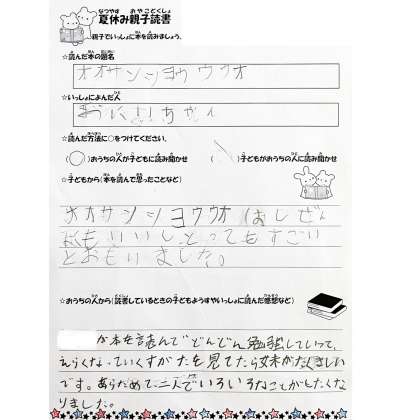 なつやす おやこどくしょ
夏休み親子読書
親子でいっしょに本を読みましょう。
☆読んだ本の題名
オオサンショウウオ
☆いっしょによんだ人
おに!!ちゃん
☆読んだ方法に○をつけてください。
(○)おうちの人が子どもに読み聞かせ ( )子どもがおうちの人に読み聞かせ
☆子どもから(本を読んで思ったことなど)
オオサンショウウオはしぜん
とおもいました。
☆おうちの人から(読書しているときの子どものようすやいっしょに読んだ感想など)
が本を読んでどんどん勉強していって、
えらくなっていくすがたを見てたら
です。あらためて二人でいろいろなことがしたくな
りました。